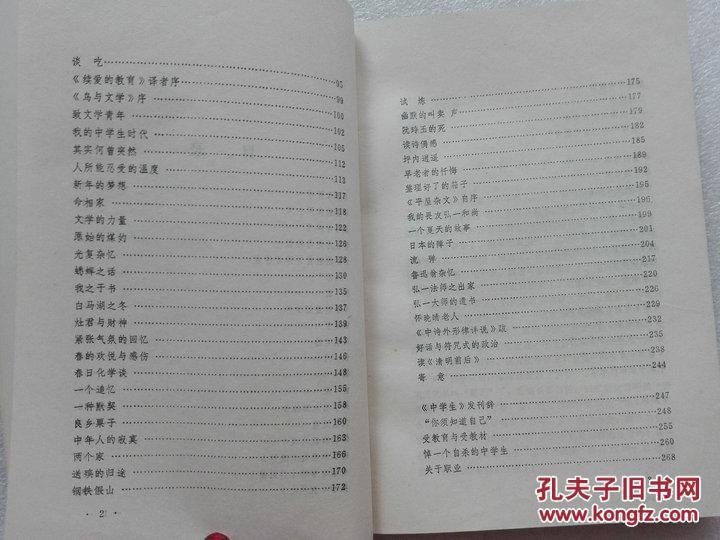 谈 吃……95
《续爱的教育》译者序……99
《鸟与文学》序……100
致文学青年……102
我的中学生时代……105
其实何曾突然……112
人所能忍受的温度……113
新年的梦想……117
命相家……118
文学的力量……122
原始的媒妁……126
光复杂忆……128
蟋蟀之话……130
我之于书……135
白马湖之冬……137
灶君与财神……139
紧张气氛的回忆……143
春的欢悦与感伤……146
春日化学谈……148
一个追忆……155
一种默契……158
良乡栗子……160
中年人的寂寞……163
两个家……166
送殡的归途……170
钢铁假山……172
· 2 ·
试 炼……175
幽默的叫卖 声……177
阮玲玉的死……179
读诗偶感……182
坪内逍遥……185
早老者的忏悔……189
整理好了的箱子……192
《平屋杂文》自序……195
我的畏友弘一和尚……196
一个夏天的故事……199
日本的障子……201
流 弹……204
鲁迅翁杂忆……217
弘一法师之出家……220
弘一大师的遗书……226
怀晚晴老人……229
《中诗外形律详说》跋……232
好话与符咒式的政治……235
读《清明前后》……238
寄 意……244
《中学生》发刊辞……247
“你须知道自己”……248
受教育与受教材……255
悼一个自杀的中学生……260
关于职业……268
孔夫子旧书网
www.kongfz.com